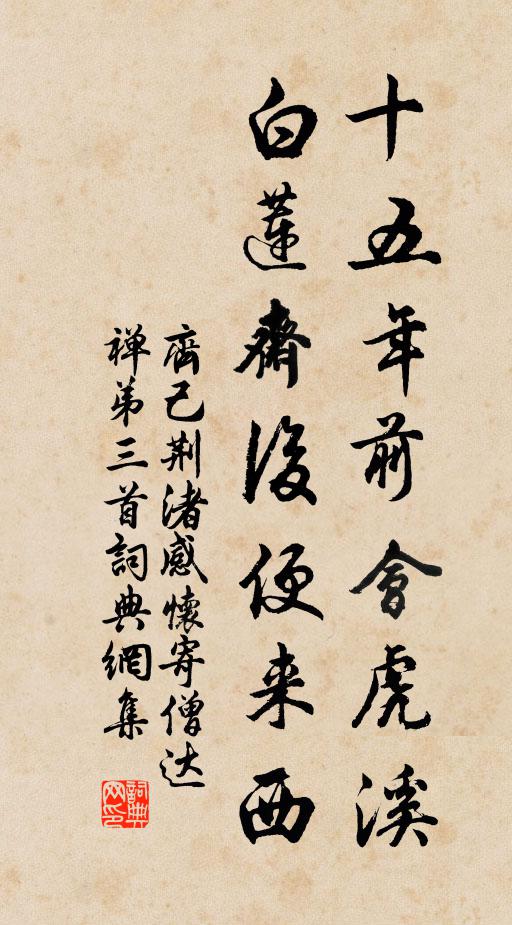 十五年前會虎溪
白蓮齋後便来西
齊己荆渚感懷寄僧达
禅弟三首詞典網集
詞典网印